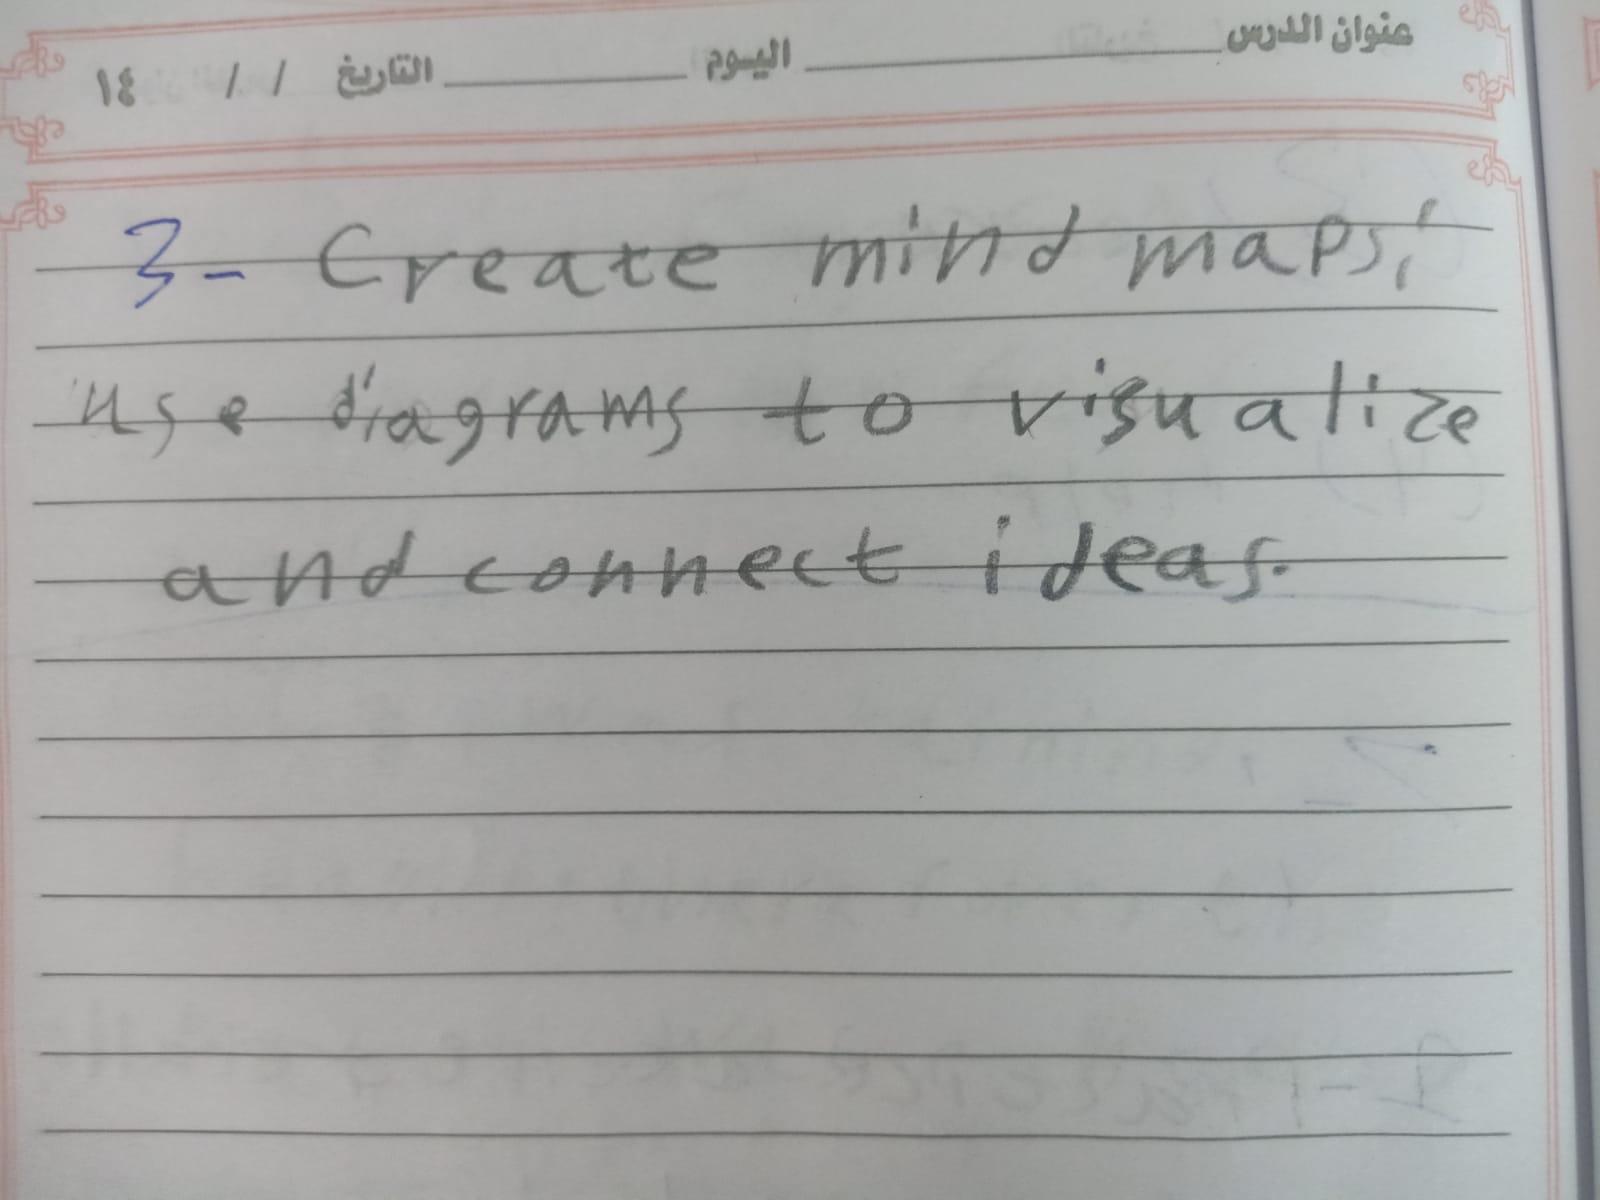 عنوان الدرس ____________ اليوم ________ التاريخ / / ١٤
3- Create mind maps;
use diagrams to visualize
and connect ideas.